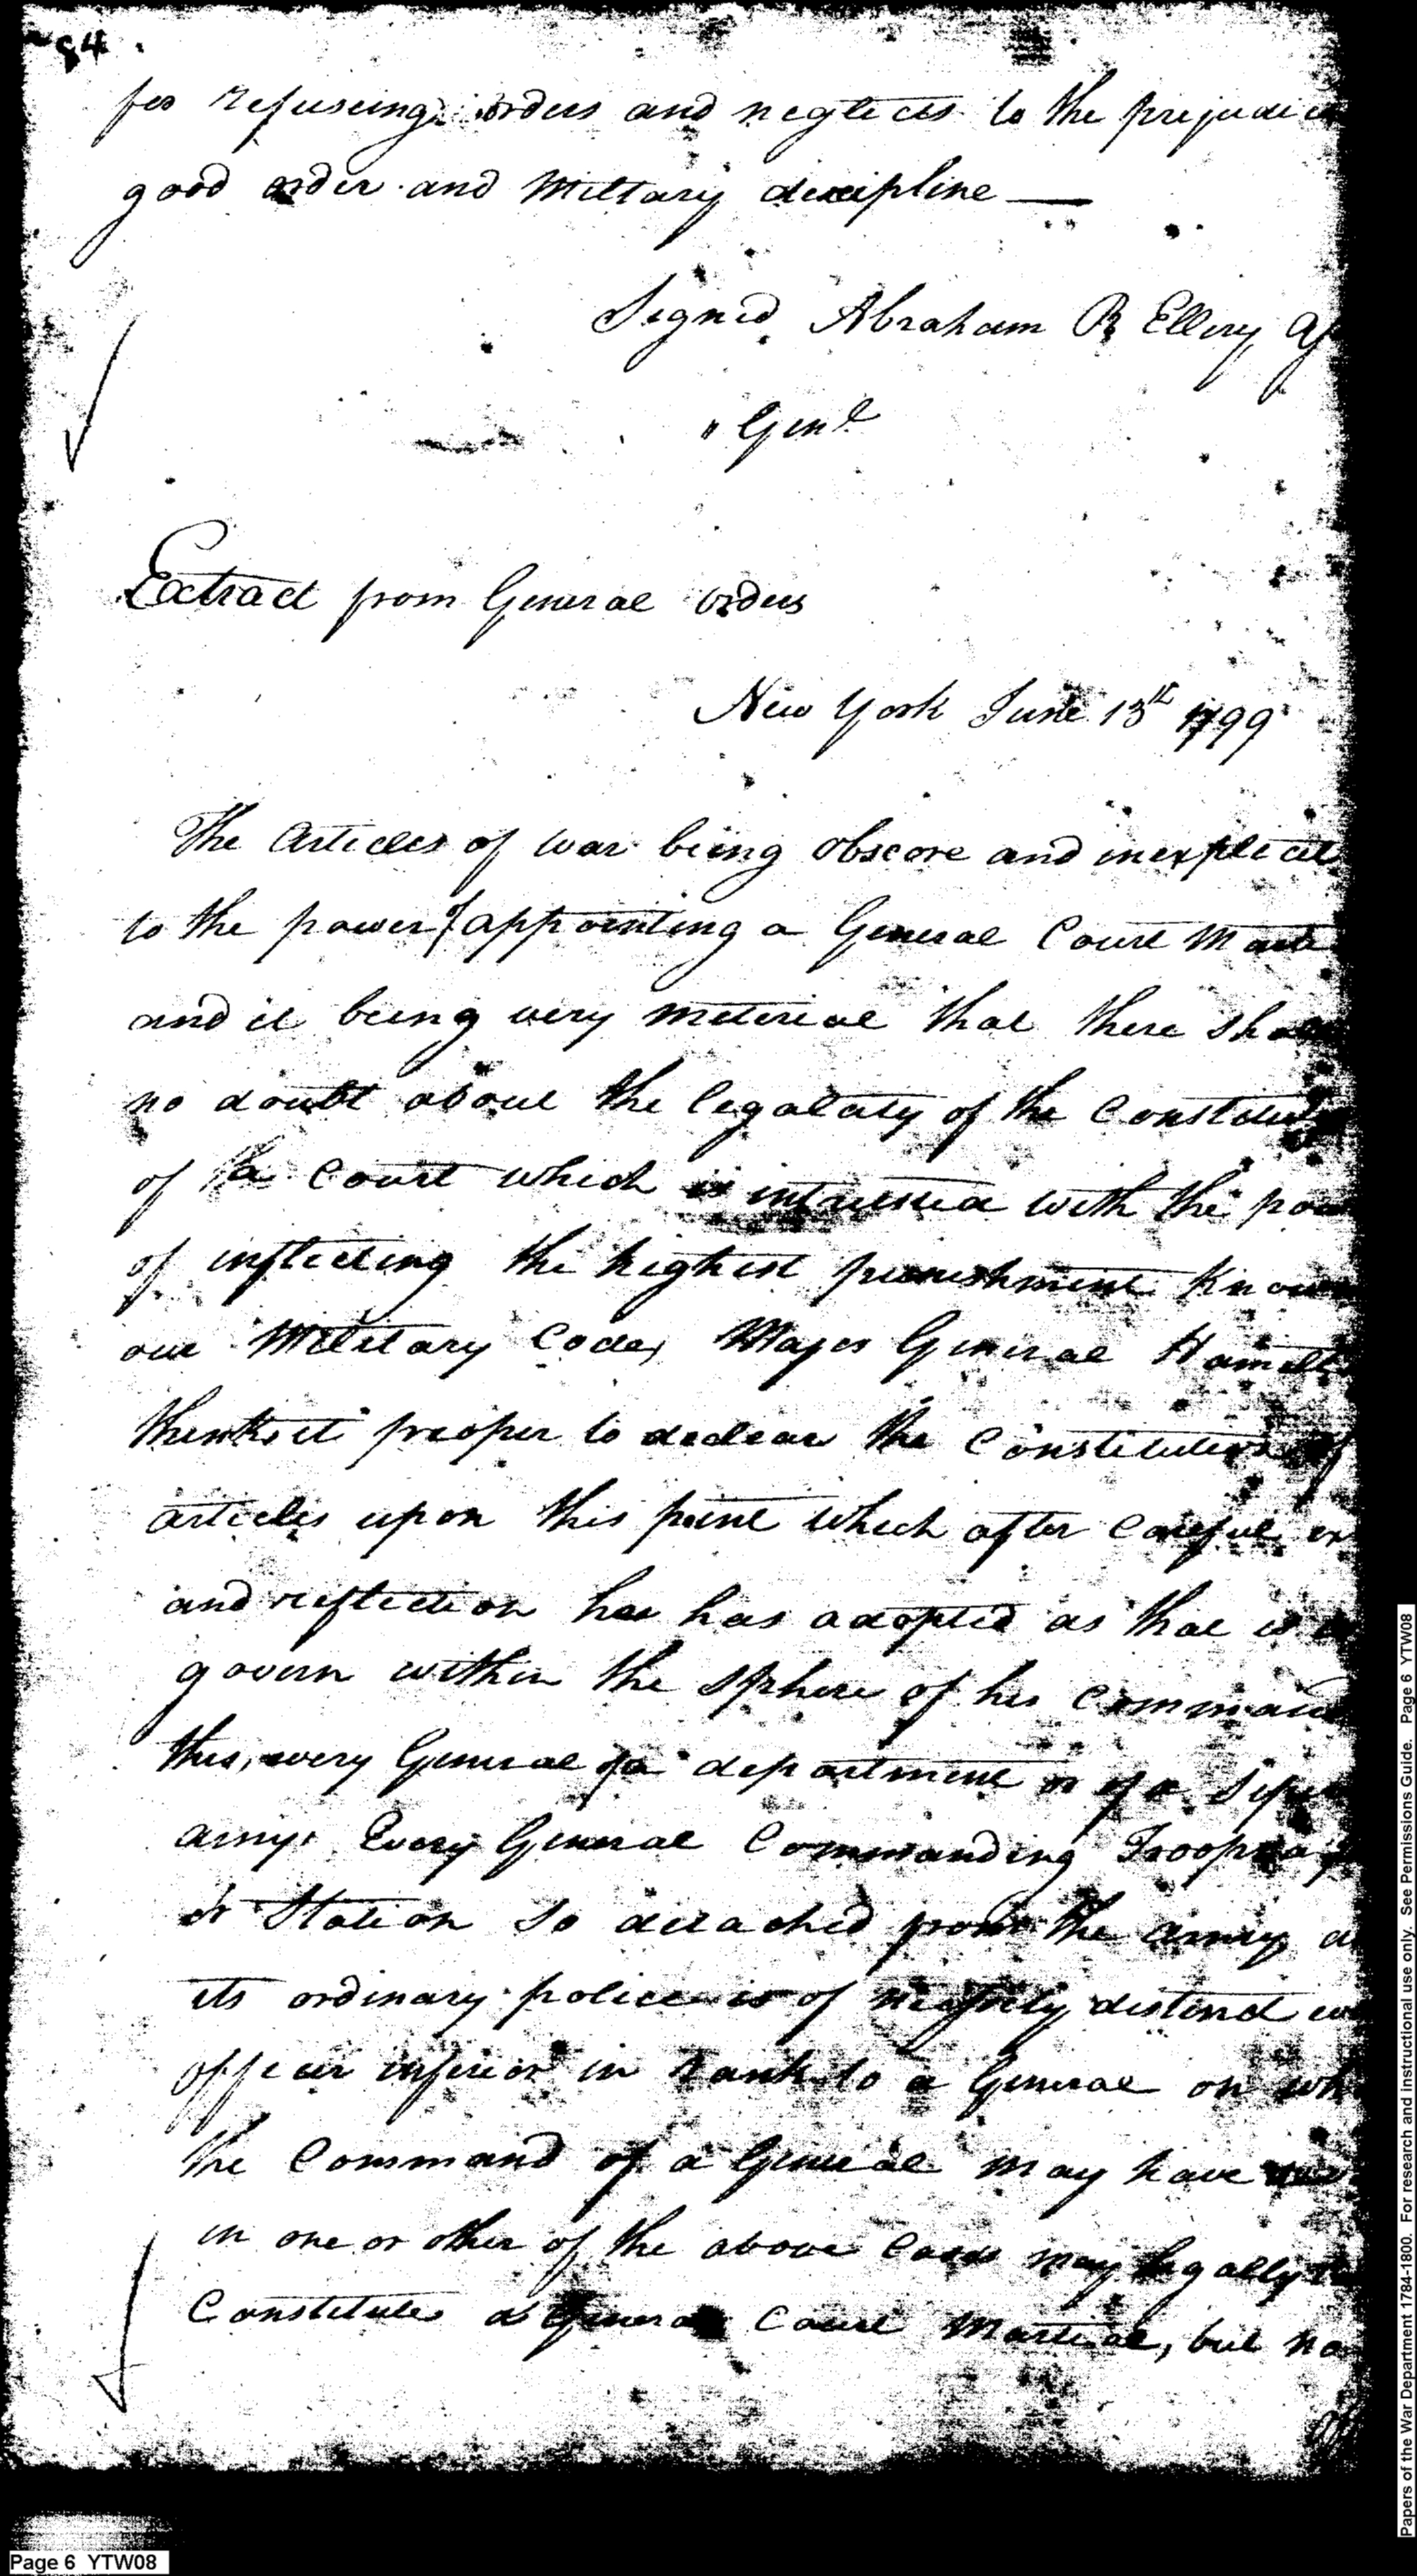 84
for refuseing orders and neglects to the prejudice
good order and Miltary discipline —
Signed Abraham R Ellery
Genl
Extract from General orders
New York June 13th 1799
The Articles of war being obscore and inexplicit
to the power of appointing a General Court
and it being very meterial that there
no doubt about the legalaty of the
of a Court which is with the
of inflicting the highest punishment
our Military Code, Major General
thinks it proper to declear the
articles upon this point which after Careful
and reflection hee has adopted as that is
govern within the sphere of his
this, every General of a department or of a
army. Every General Commanding
or Station so detached from the army
its ordinary police is of distinct
officer inferior in rank to a General on
the Command of a General may have
in one or other of the above Cases may legally
Constitute a General Court Martial, but
Page 6 YTW08
Papers of the War Department 1784-1800. For research and instructional use only. See Permissions Guide. Page 6 YTW08